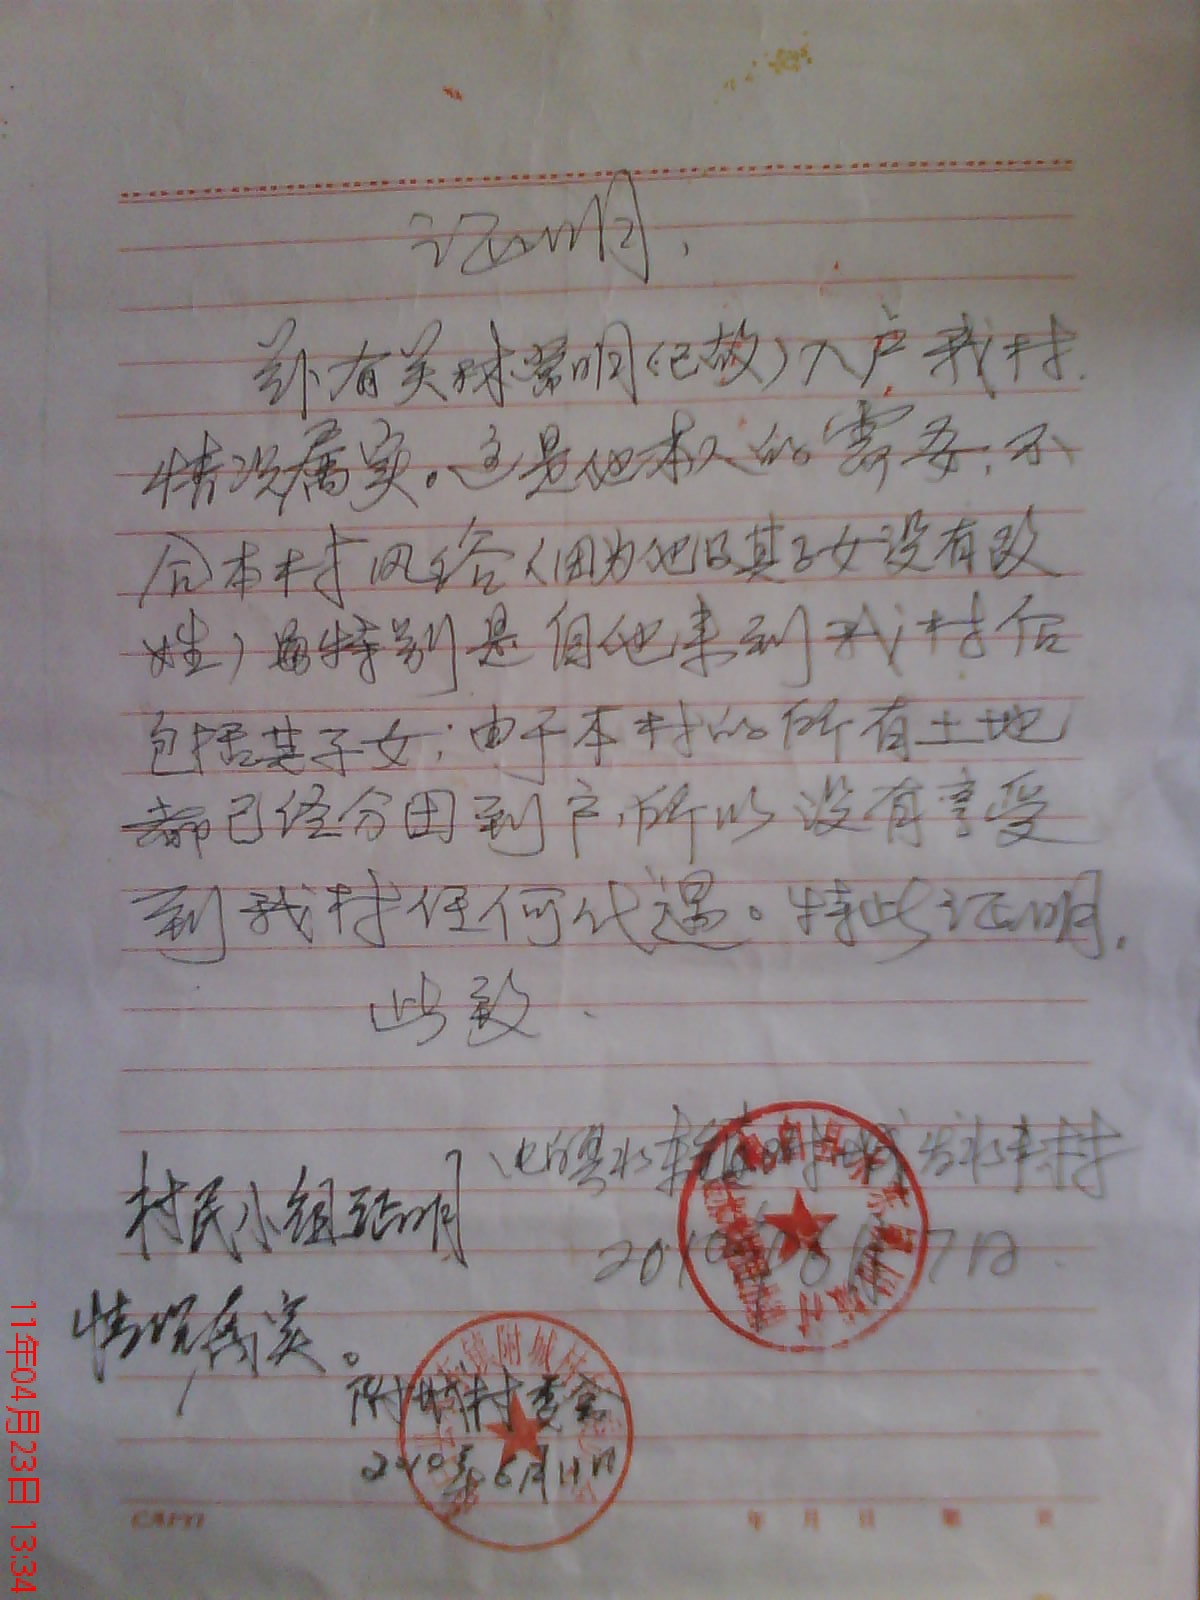 证明
兹有关林常明(已故)入户我村
情况属实。这是他本人的需要,不
合本村风俗(因为他及其子女没有改
姓)特别是自他来到我村后
包括其子女;由于本村的所有土地
都已经分田到户,所以没有享受
到我村任何代遇。特此证明.
此致
村民小组证明
2010年6月7日
情况属实。
镇附城村
附城村委会
2010年6月11日
年 月 日 第 页
11年04月23日 13:34